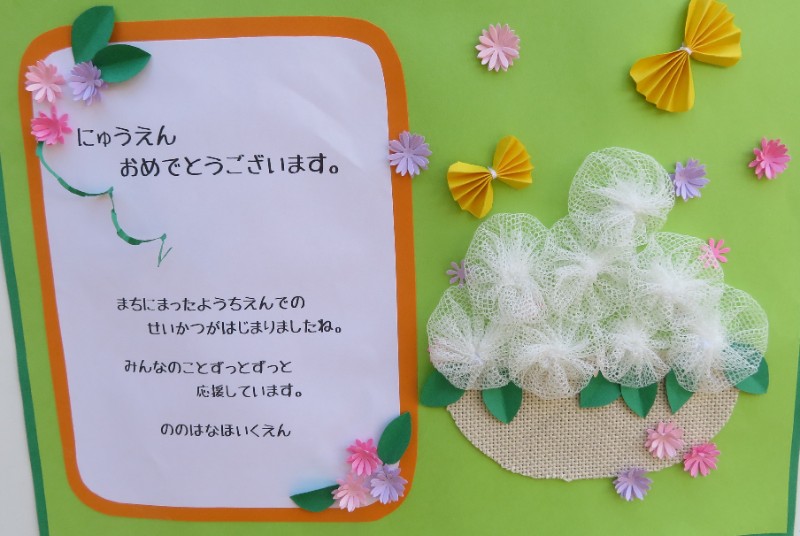 にゅうえん
おめでとうございます。
まちにまったようちえんでの
せいかつがはじまりましたね。
みんなのことずっとずっと
応援しています。
ののはなほいくえん